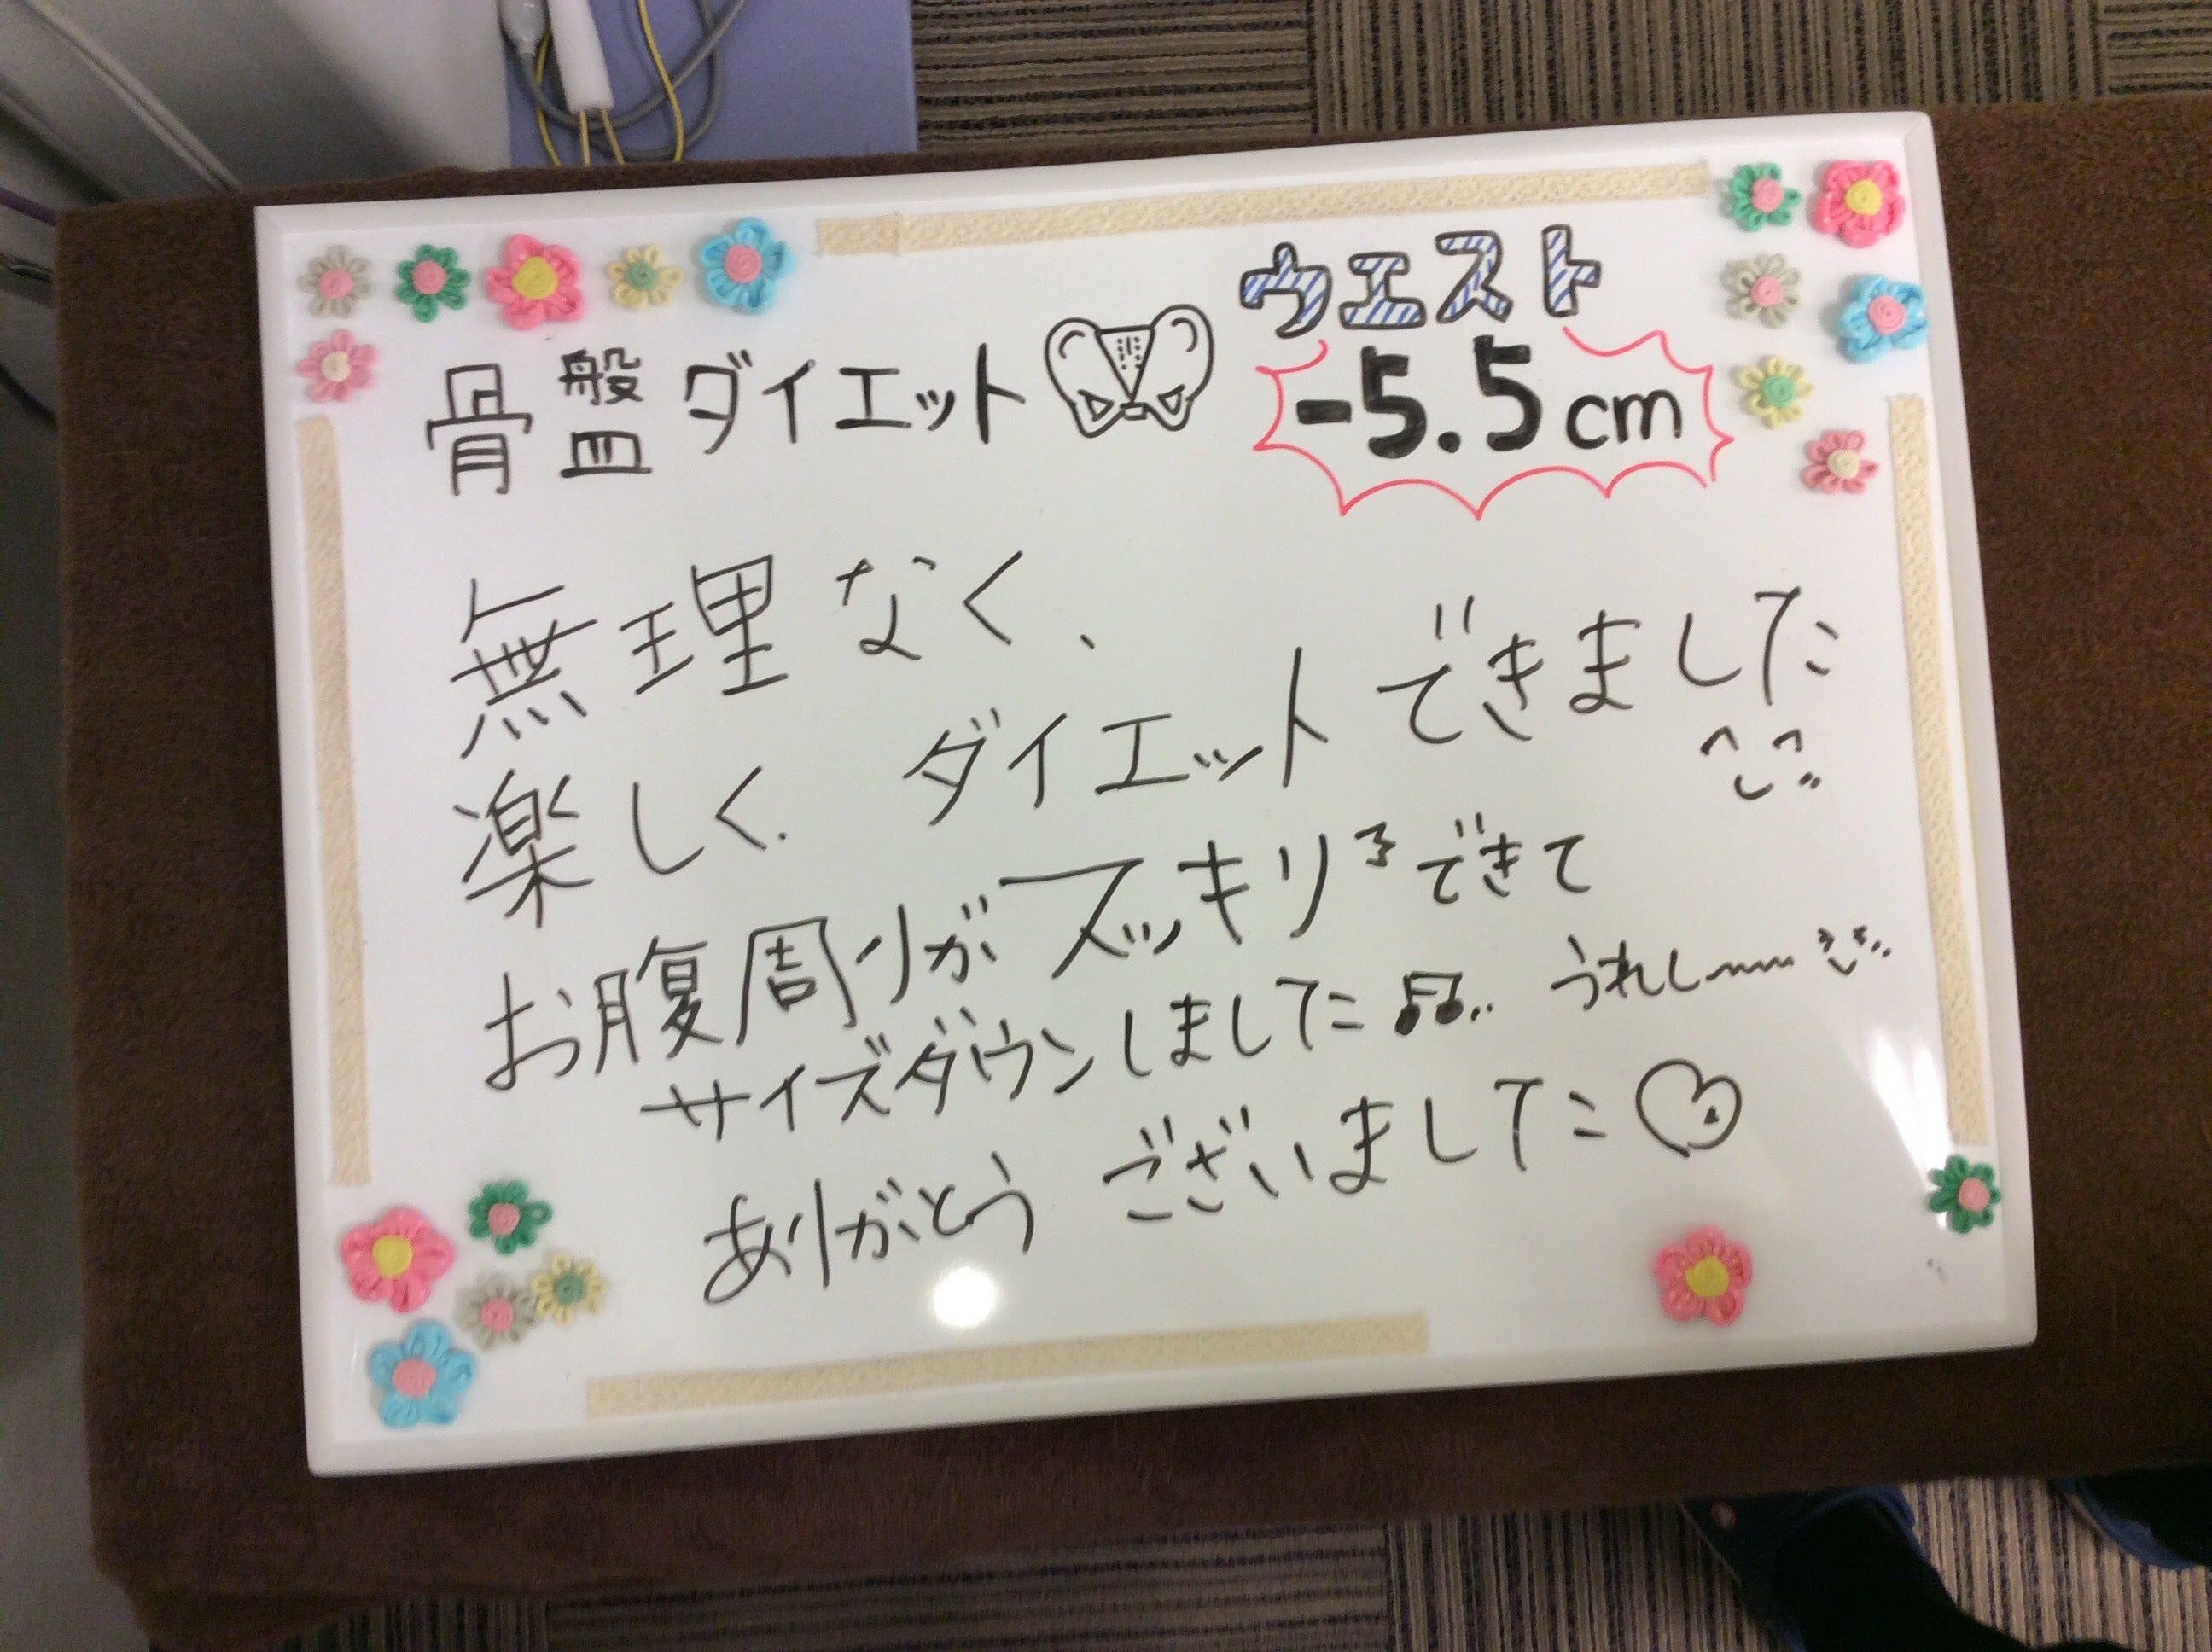 骨盤ダイエット
ウエスト
-5.5cm
無理なく、
楽しく、ダイエットできました
お腹周りがスッキリできて
サイズダウンしました♫ うれし〜〜
ありがとうございました♡